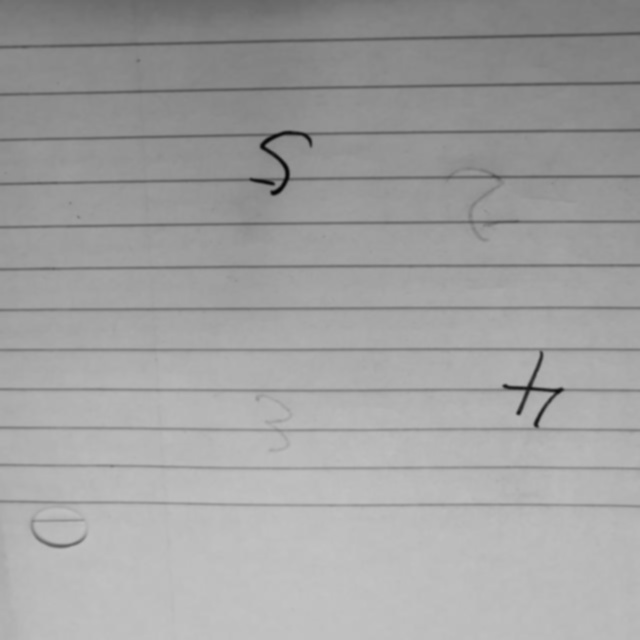 5
2
4
3
0